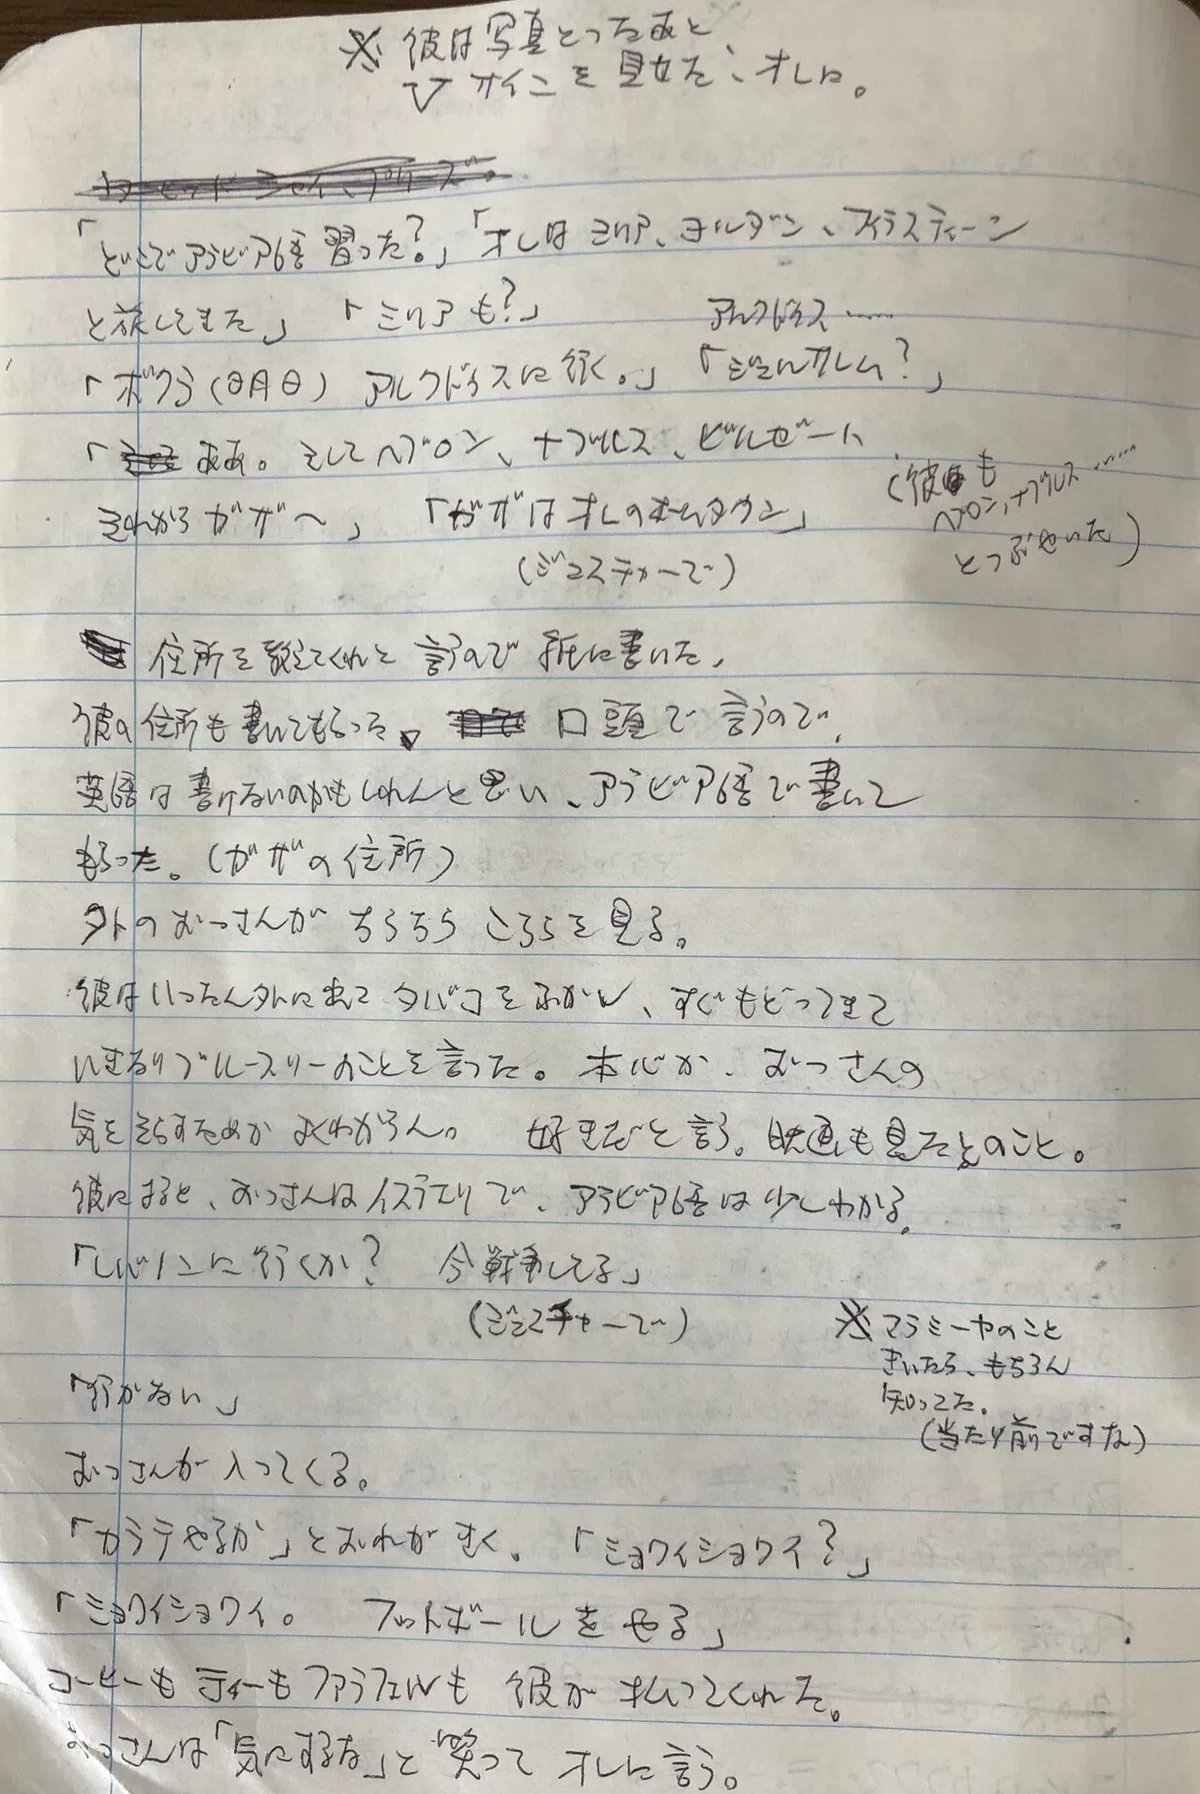 ※ 彼は写真とったあと
Vサインを見せた、オレに。
「どこでアラビア語習った?」「オレはシリア、ヨルダン、フィラスティーン
と旅してきた」 「シリアも?」
アルクドゥス……
「ボクら(明日) アルクドゥスに行く。」「ジェルサレム?」
「ああ。そしてヘブロン、ナブルス、ビルゼート
それからガザ〜」 「ガザはオレのホームタウン」
(ジェスチャーで)
(彼も
ヘブロン、ナブルス……
とつぶやいた)
住所を教えてくれと言うので紙に書いた。
彼の住所も書いてもらった。 口頭で言うので、
英語は書けないのかもしれんと思い、アラビア語で書いて
もらった。(ガザの住所)
外のおっさんがちらちらこちらを見る。
彼はいったん外に出てタバコをふかし、すぐもどってきて
いきなりブルースリーのことを言った。本心か、おっさんの
気をそらすためかよくわからん。 好きだと言う。映画も見たとのこと。
彼によると、おっさんはイスラエリで、アラビア語は少しわかる。
「レバノンに行くか? 今戦争してる」
(ジェスチャーで)
※ マラミーヤのこと
きいたら、もちろん
知ってた。
(当たり前ですな)
「行かない」
おっさんが入ってくる。
「カラテやるか」とおれがきく。 「ショワイショワイ?」
「ショワイショワイ。 フットボールをやる」
コーヒーもティーもファラフェルも彼が払ってくれた。
おっさんは「気にするな」と笑ってオレに言う。